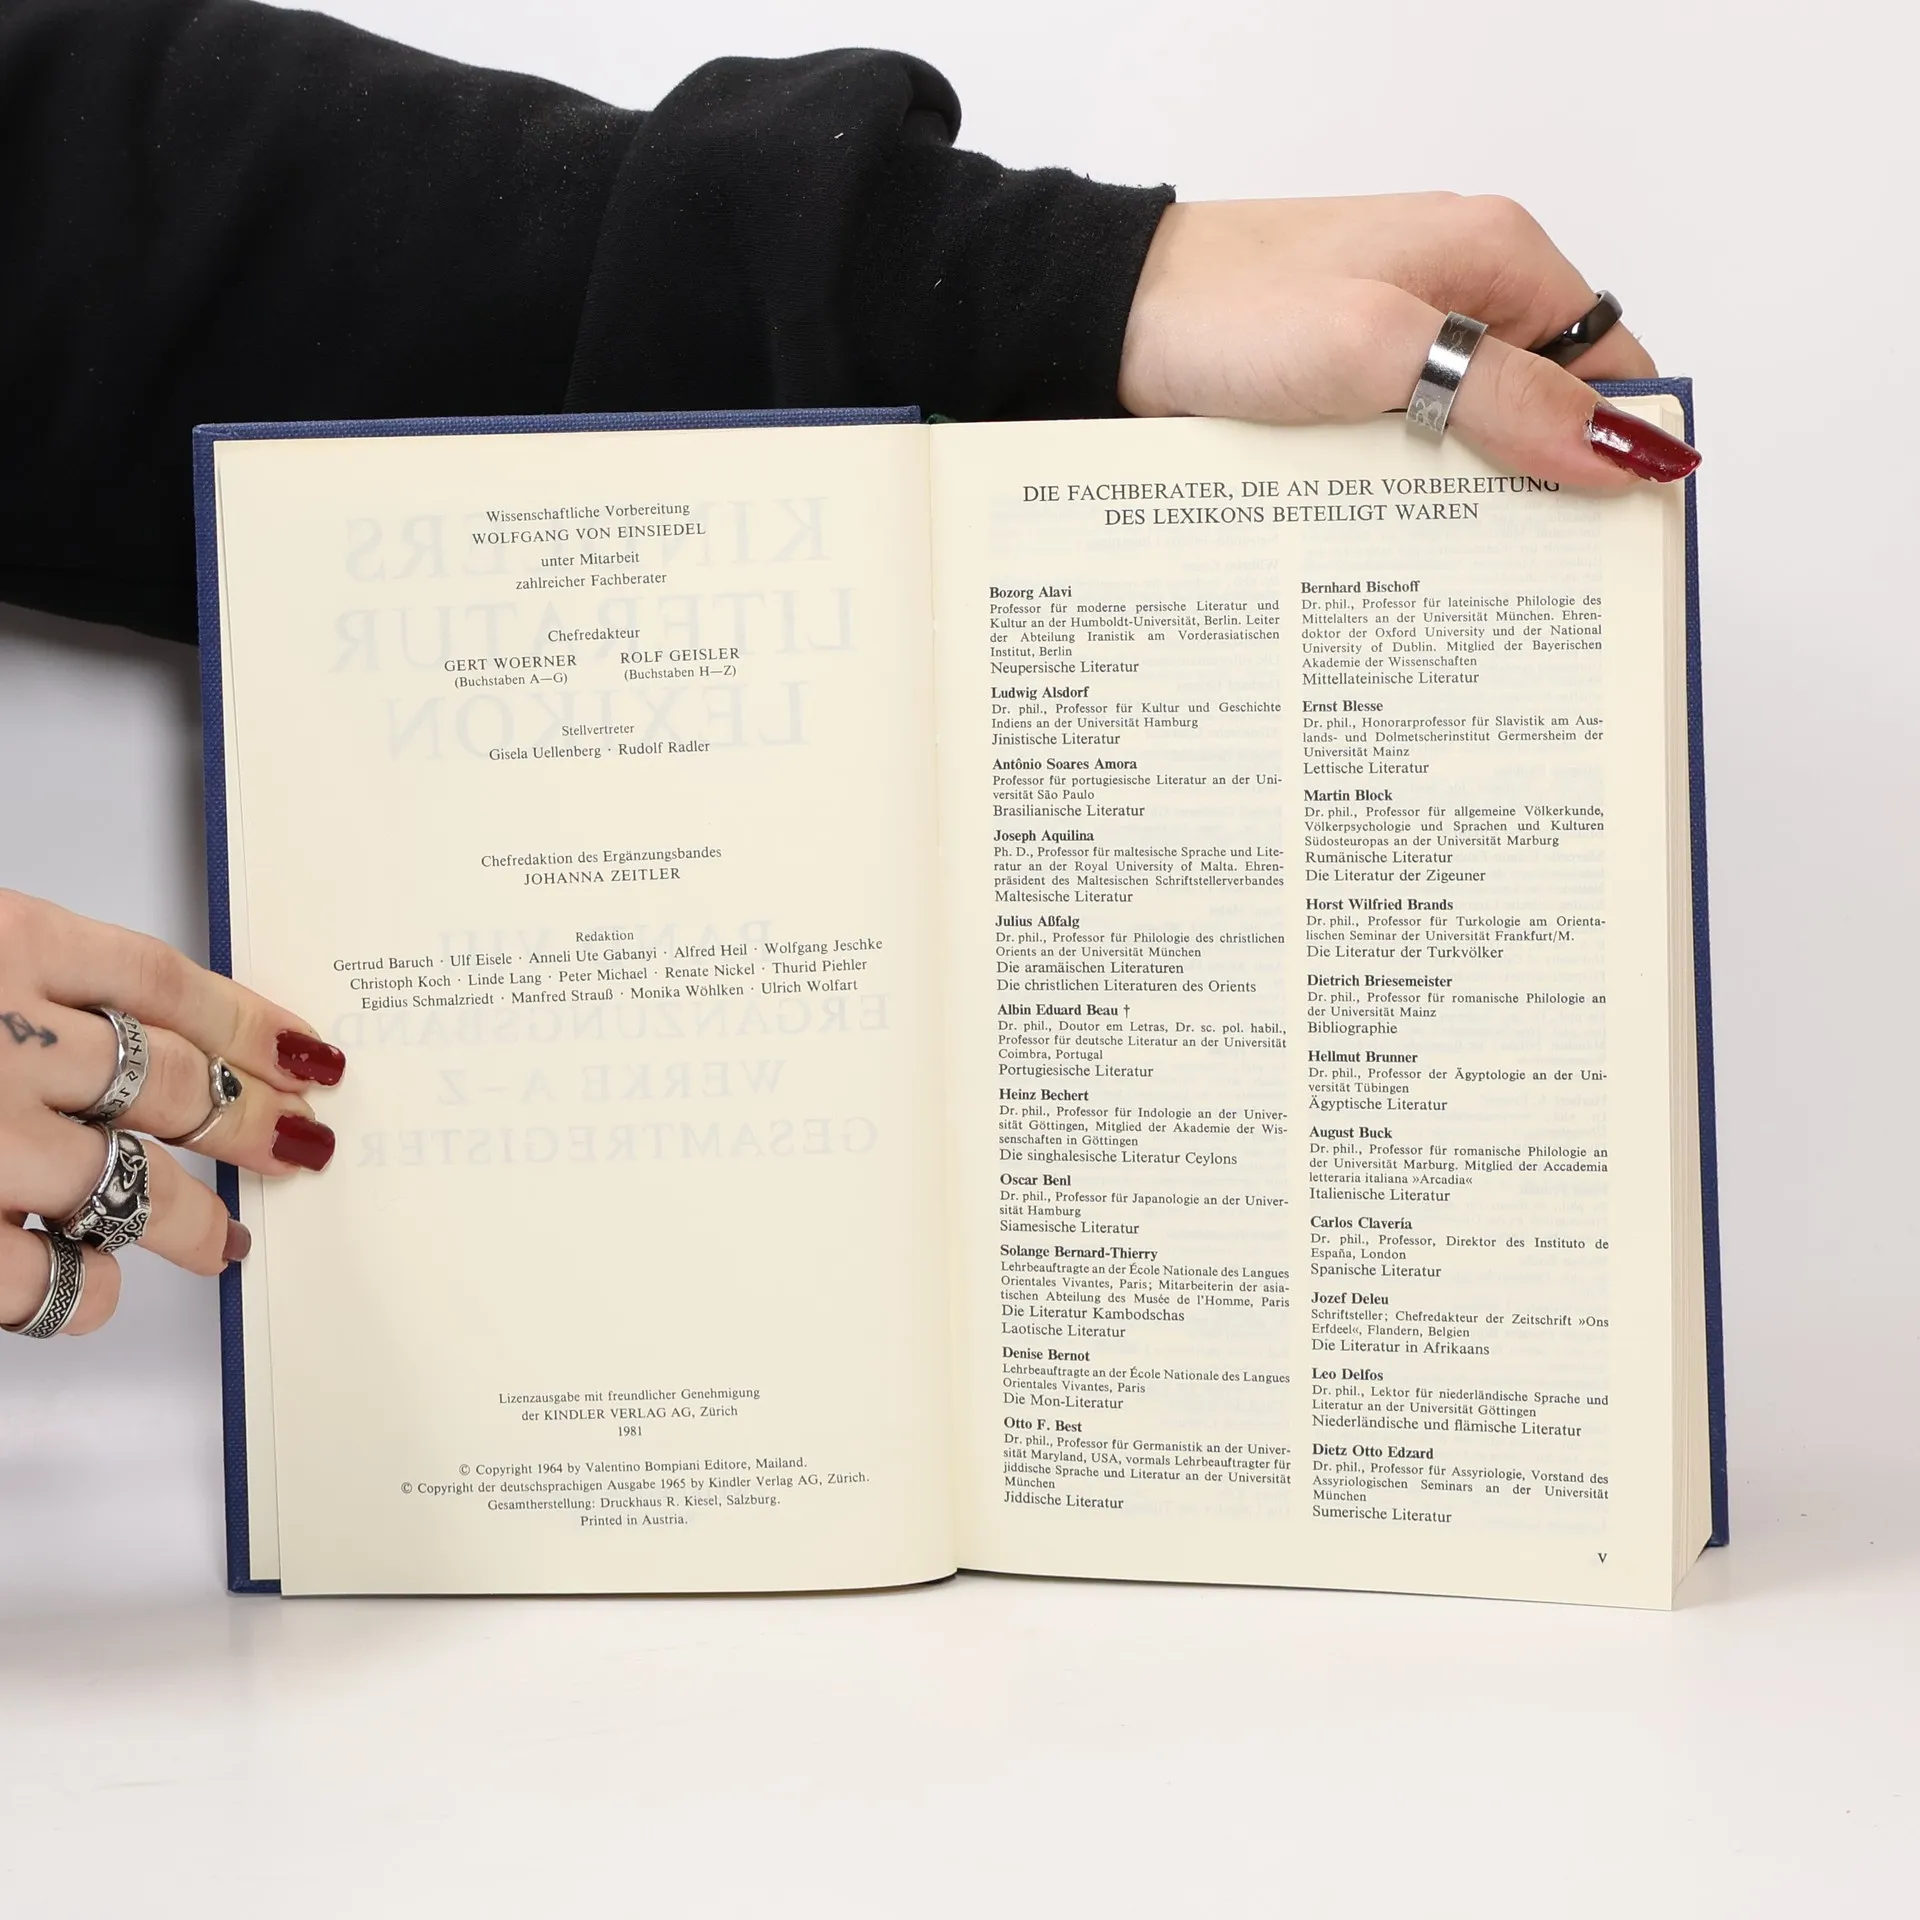 Wissenschaftliche Vorbereitung
WOLFGANG VON EINSIEDEL
unter Mitarbeit
zahlreicher Fachberater
Chefredakteur
GERT WOERNER ROLF GEISLER
(Buchstaben A—G) (Buchstaben H—Z)
Stellvertreter
Gisela Uellenberg · Rudolf Radler
Chefredaktion des Ergänzungsbandes
JOHANNA ZEITLER
Redaktion
Gertrud Baruch · Ulf Eisele · Anneli Ute Gabanyi · Alfred Heil · Wolfgang Jeschke
Christoph Koch · Linde Lang · Peter Michael · Renate Nickel · Thurid Piehler
Egidius Schmalzriedt · Manfred Strauß · Monika Wöhlken · Ulrich Wolfart
Lizenzausgabe mit freundlicher Genehmigung
der KINDLER VERLAG AG, Zürich
1981
© Copyright 1964 by Valentino Bompiani Editore, Mailand.
© Copyright der deutschsprachigen Ausgabe 1965 by Kindler Verlag AG, Zürich.
Gesamtherstellung: Druckhaus R. Kiesel, Salzburg.
Printed in Austria.
KINDLERS
LITERATUR
LEXIKON
BAND VIII
ERGÄNZUNGSBAND
WERKE A–Z
GESAMTREGISTER
DIE FACHBERATER, DIE AN DER VORBEREITUNG
DES LEXIKONS BETEILIGT WAREN
Bozorg Alavi
Professor für moderne persische Literatur und
Kultur an der Humboldt-Universität, Berlin. Leiter
der Abteilung Iranistik am Vorderasiatischen
Institut, Berlin
Neupersische Literatur
Ludwig Alsdorf
Dr. phil., Professor für Kultur und Geschichte
Indiens an der Universität Hamburg
Jinistische Literatur
Antônio Soares Amora
Professor für portugiesische Literatur an der Uni-
versität São Paulo
Brasilianische Literatur
Joseph Aquilina
Ph. D., Professor für maltesische Sprache und Lite-
ratur an der Royal University of Malta. Ehren-
präsident des Maltesischen Schriftstellerverbandes
Maltesische Literatur
Julius Aßfalg
Dr. phil., Professor für Philologie des christlichen
Orients an der Universität München
Die aramäischen Literaturen
Die christlichen Literaturen des Orients
Albin Eduard Beau †
Dr. phil., Doutor em Letras, Dr. sc. pol. habil.,
Professor für deutsche Literatur an der Universität
Coimbra, Portugal
Portugiesische Literatur
Heinz Bechert
Dr. phil., Professor für Indologie an der Univer-
sität Göttingen, Mitglied der Akademie der Wis-
senschaften in Göttingen
Die singhalesische Literatur Ceylons
Oscar Benl
Dr. phil., Professor für Japanologie an der Univer-
sität Hamburg
Siamesische Literatur
Solange Bernard-Thierry
Lehrbeauftragte an der École Nationale des Langues
Orientales Vivantes, Paris; Mitarbeiterin der asia-
tischen Abteilung des Musée de l'Homme, Paris
Die Literatur Kambodschas
Laotische Literatur
Denise Bernot
Lehrbeauftragte an der École Nationale des Langues
Orientales Vivantes, Paris
Die Mon-Literatur
Otto F. Best
Dr. phil., Professor für Germanistik an der Univer-
sität Maryland, USA, vormals Lehrbeauftragter für
jiddische Sprache und Literatur an der Universität
München
Jiddische Literatur
Bernhard Bischoff
Dr. phil., Professor für lateinische Philologie des
Mittelalters an der Universität München. Ehren-
doktor der Oxford University und der National
University of Dublin. Mitglied der Bayerischen
Akademie der Wissenschaften
Mittellateinische Literatur
Ernst Blesse
Dr. phil., Honorarprofessor für Slavistik am Aus-
lands- und Dolmetscherinstitut Germersheim der
Universität Mainz
Lettische Literatur
Martin Block
Dr. phil., Professor für allgemeine Völkerkunde,
Völkerpsychologie und Sprachen und Kulturen
Südosteuropas an der Universität Marburg
Rumänische Literatur
Die Literatur der Zigeuner
Horst Wilfried Brands
Dr. phil., Professor für Turkologie am Orienta-
lischen Seminar der Universität Frankfurt/M.
Die Literatur der Turkvölker
Dietrich Briesemeister
Dr. phil., Professor für romanische Philologie an
der Universität Mainz
Bibliographie
Hellmut Brunner
Dr. phil., Professor der Ägyptologie an der Uni-
versität Tübingen
Ägyptische Literatur
August Buck
Dr. phil., Professor für romanische Philologie an
der Universität Marburg. Mitglied der Accademia
letteraria italiana »Arcadia«
Italienische Literatur
Carlos Clavería
Dr. phil., Professor, Direktor des Instituto de
España, London
Spanische Literatur
Jozef Deleu
Schriftsteller; Chefredakteur der Zeitschrift »Ons
Erfdeel«, Flandern, Belgien
Die Literatur in Afrikaans
Leo Delfos
Dr. phil., Lektor für niederländische Sprache und
Literatur an der Universität Göttingen
Niederländische und flämische Literatur
Dietz Otto Edzard
Dr. phil., Professor für Assyriologie, Vorstand des
Assyriologischen Seminars an der Universität
München
Sumerische Literatur
V